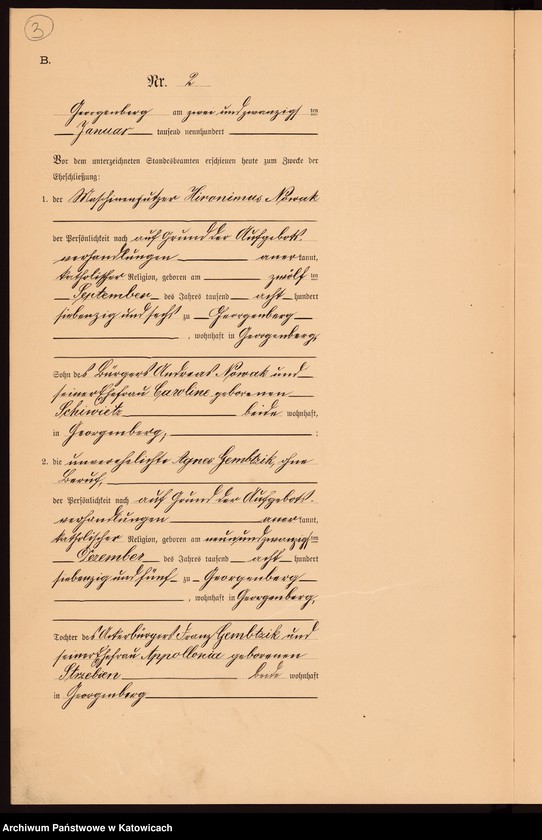 3
B.
Nr. 2
Georgenberg am zwei und zwanzigs ten
Januar tausend neunhundert
Vor dem unterzeichneten Standesbeamten erschienen heute zum Zwecke der
Eheschließung:
1. der Maschinenputzer Hironimus Nowak
der Persönlichkeit nach auf Grund der Aufgebots-
verhandlungen aner kannt,
katholischer Religion, geboren am zwölf ten
September des Jahres tausend acht hundert
siebenzig und sechs zu Georgenberg
, wohnhaft in Georgenberg,
Sohn des Bürgers Andreas Nowak und
seiner Ehefrau Caroline geborenen
Schiwietz beide wohnhaft,
in Georgenberg, ;
2. die unverehelichte Agnes Gembtzik, ohne
Beruf,
der Persönlichkeit nach auf Grund der Aufgebots-
verhandlungen aner kannt,
katholischer Religion, geboren am neun und zwanzigs ten
Dezember des Jahres tausend acht hundert
siebenzig und fünf zu Georgenberg
, wohnhaft in Georgenberg,
Tochter des Ackerbürgers Franz Gembtzik und
seiner Ehefrau Appollonia geborenen
beide wohnhaft
in Georgenberg
Archiwum Państwowe w Katowicach